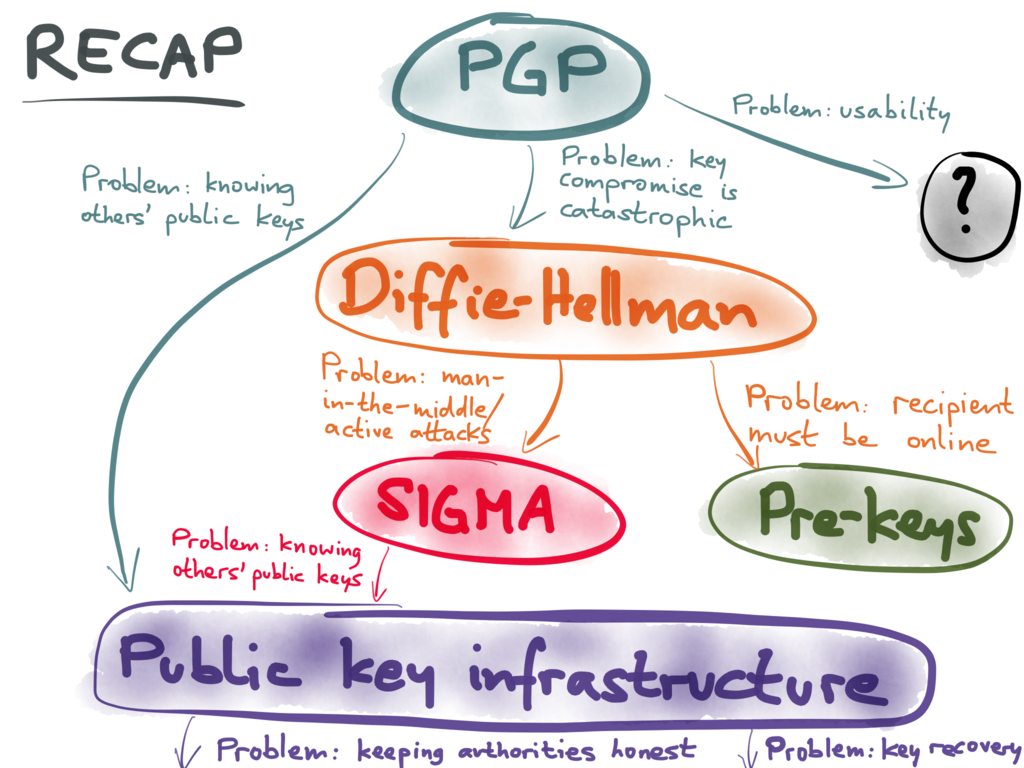 RECAP
PGP
Problem: usability
?
Problem: knowing
others' public keys
Problem: key
compromise is
catastrophic
Diffie-Hellman
Problem: man-
in-the-middle/
active attacks
Problem: recipient
must be online
SIGMA
Pre-keys
Problem: knowing
others' public keys
Public key infrastructure
Problem: keeping authorities honest
Problem: key recovery